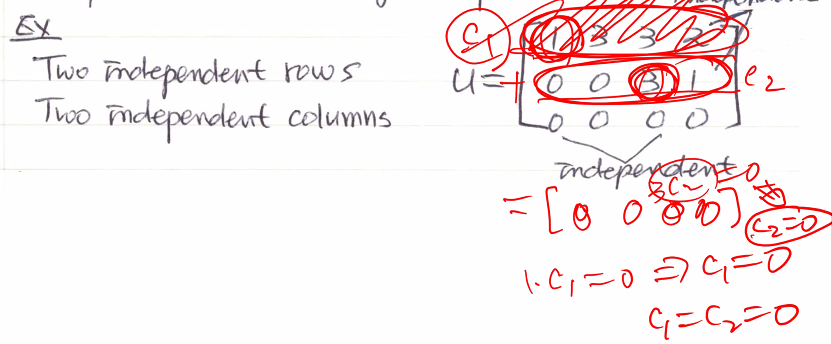 Ex
Two independent rows
Two independent columns
C1 [1 3 3 2]
U = + [0 0 3 1] C2
[0 0 0 0]
independent
3C2 = 0
= [0 0 0 0] ⇒ C2=0
1·C1=0 ⇒ C1=0
C1=C2=0